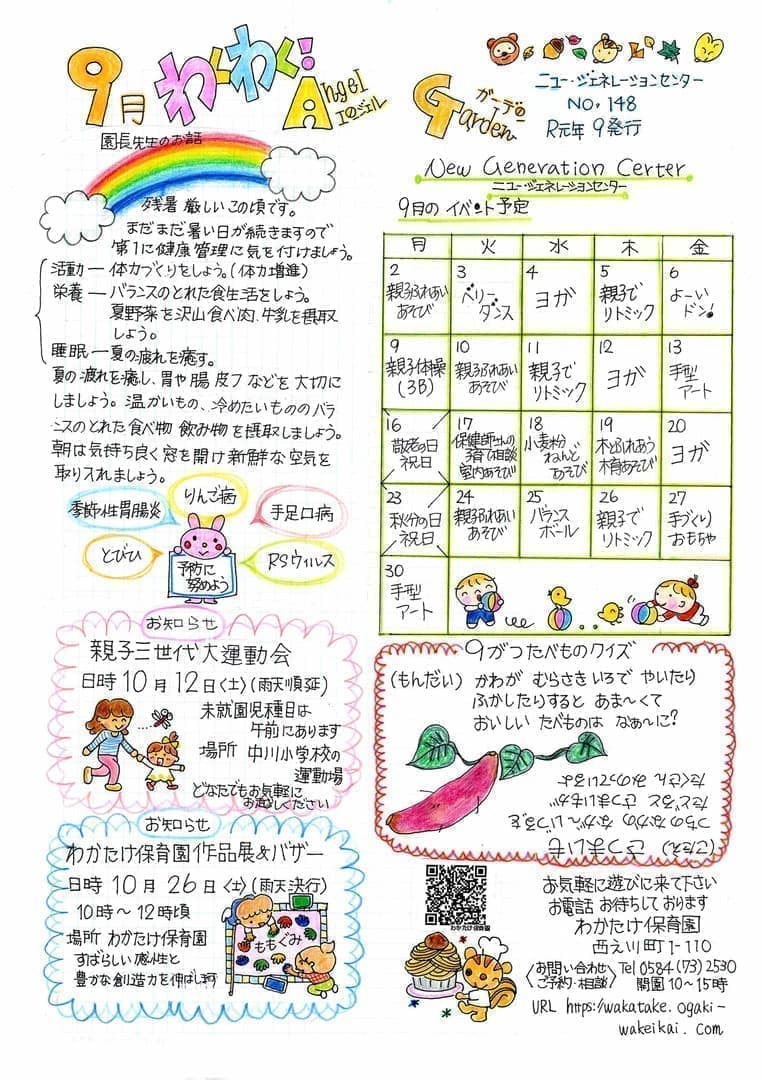 9月 わくわく!
Angel
エのジェル
ガーデの
Garden
ニュー・ジェネレーションセンター
NO. 148
R元年 9発行
園長先生のお話
残暑 厳しいこの頃です。
まだまだ暑い日が続きますので
第1に健康管理に気を付けましょう。
活動 ― 体力づくりをしよう。(体力増進)
栄養 ― バランスのとれた食生活をしよう。
夏野菜を沢山食べ肉、牛乳を摂取
しよう。
睡眠 ― 夏の疲れを癒す。
夏の疲れを癒し、胃や腸 皮フなどを大切に
しましょう。温かいもの、冷めたいもののバラ
ンスのとれた食べ物 飲み物を摂取しましょう。
朝は気持ち良く窓を開け新鮮な空気を
取り入れましょう。
りんご病
季節性胃腸炎
手足口病
とびひ
RSウィルス
予防に
努めよう
New Generation Certer
ニュー・ジェネレーションセンター
9月のイベント予定
月 火 水 木 金
2 3 4 5 6
親子ふれあい
あそび
ベリー
ダンス
ヨガ
親子で
リトミック
よーい
ドン!
9 10 11 12 13
親子体操
(3B)
親子ふれあい
あそび
親子で
リトミック
ヨガ
手型
アート
16 17 18 19 20
敬老の日
祝日
保健師さんの
子育て相談
室内あそび
小麦粉
ねんど
あそび
木とふれあう
木育あそび
ヨガ
23 24 25 26 27
秋分の日
祝日
親子ふれあい
あそび
バランス
ボール
親子で
リトミック
手づくり
おもちゃ
30
手型
アート
お知らせ
親子三世代大運動会
日時 10月12日(土)(雨天順延)
未就園児種目は
午前にあります
場所 中川小学校の
運動場
どなたでもお気軽に
お越しください
お知らせ
わかたけ保育園作品展&バザー
日時 10月26日(土)(雨天決行)
10時〜12時頃
場所 わかたけ保育園
すばらしい感性と
豊かな創造力を伸ばします
ももぐみ
9がつたべものクイズ
(もんだい) かわが むらさきいろで やいたり
ふかしたりすると あま〜くて
おいしい たべものは なぁ〜に?
(こたえ) さつまいも
つちのなかの なが〜いつるを
たどると さつまいもが
たくさん
わかたけ保育園
お気軽に遊びに来て下さい
お電話 お待ちして おります
わかたけ保育園
西え川町1-110
お問い合わせ
ご予約・相談
Tel 0584(73)2530
開園10〜15時
URL https://wakatake.ogaki-
wakeikai.com